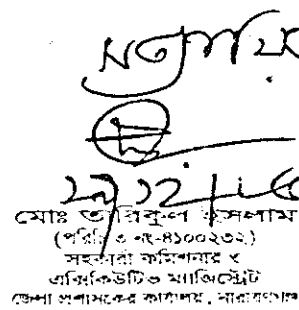 সত্যায়িত
মোঃ তারিকুল ইসলাম
(পরিচিতি নং-৪১০০২৩২)
সহকারী কমিশনার ও
এক্সিকিউটিভ ম্যাজিস্ট্রেট
জেলা প্রশাসকের কার্যালয়, নারায়ণগঞ্জ